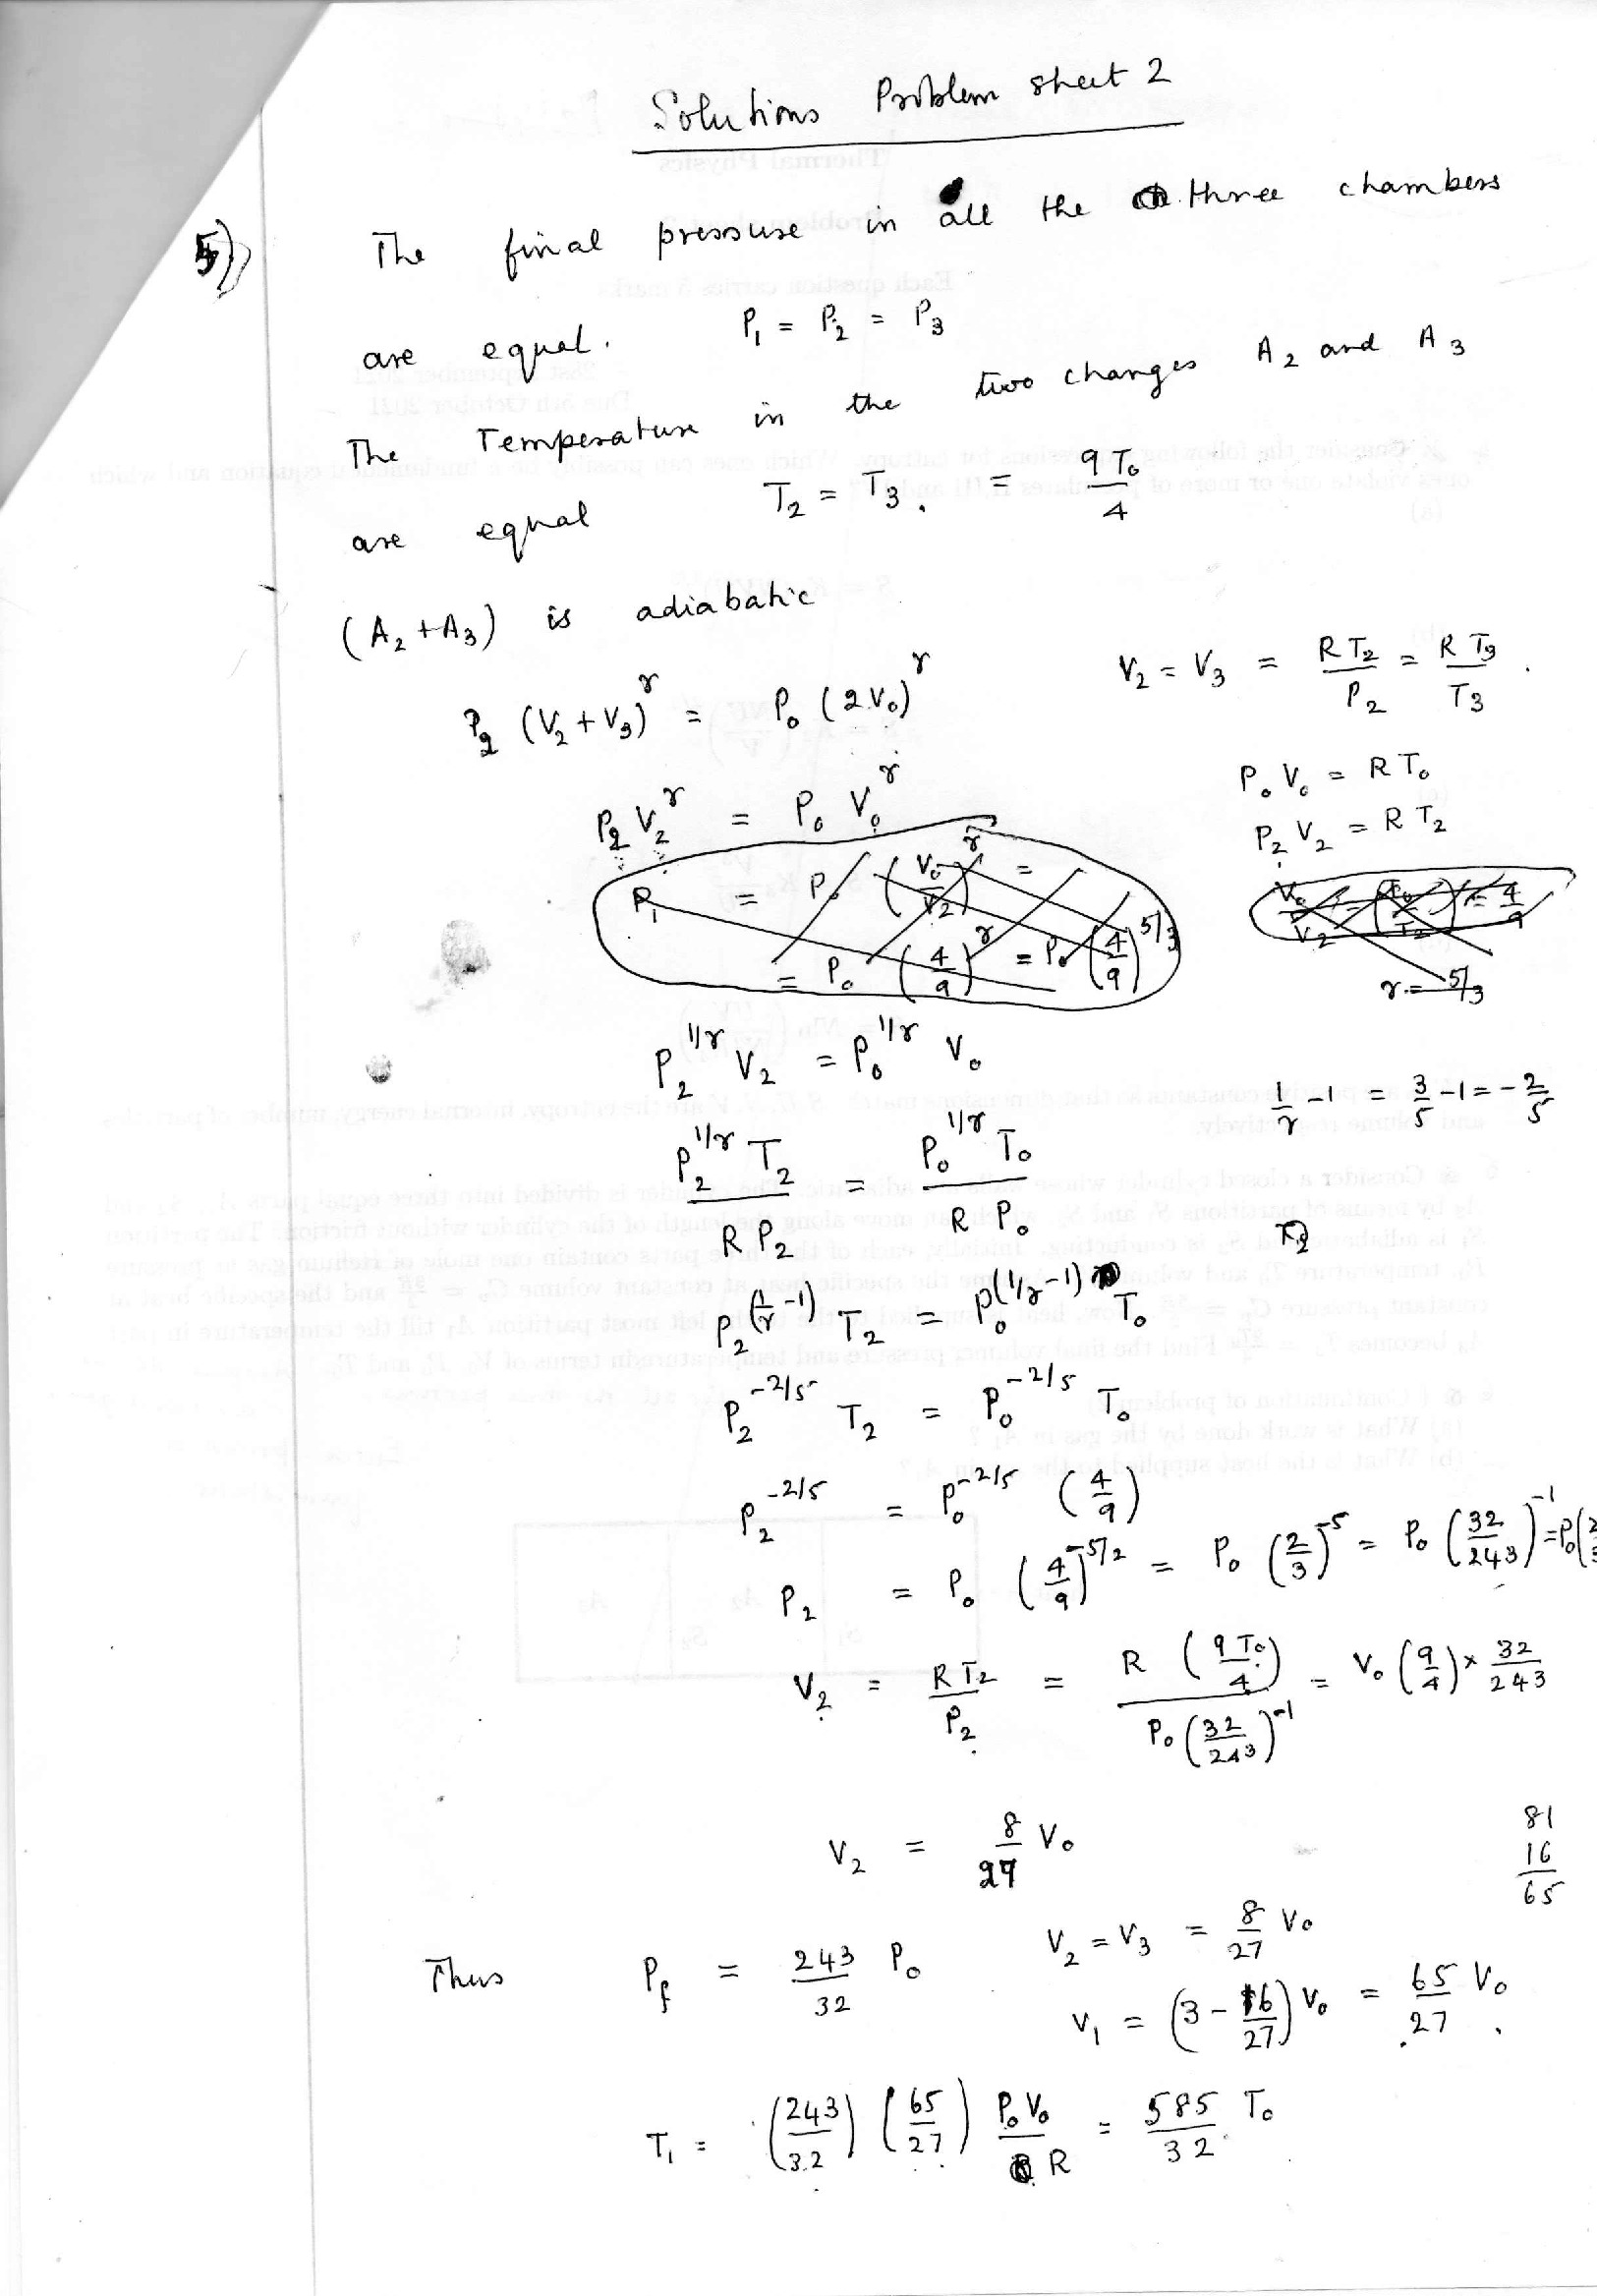 Solutions Problem sheet 2
5)
The final pressure in all the three chambers
are equal. P₁ = P₂ = P₃
The Temperature in the two changes A₂ and A₃
are equal T₂ = T₃. = 9T₀/4
(A₂ + A₃) is adiabatic
P₂ (V₂ + V₃)^γ = P₀ (2V₀)^γ V₂ = V₃ = RT₂/P₂ = RT₃/T₃ .
P₀ V₀ = R T₀
P₂ V₂^γ = P₀ V₀^γ
P₂ V₂ = R T₂
P₁ = P₀ (V₀/V₂)^γ =
V₀/V₂ = (T₀/T₂) = 4/9
= P₀ (4/9)^γ = P₀ (4/9)^5/3
γ = 5/3
P₂^1/γ V₂ = P₀^1/γ V₀
1/γ - 1 = 3/5 - 1 = -2/5
P₂^1/γ T₂ / R P₂ = P₀^1/γ T₀ / R P₀
P₂^(1/γ - 1) T₂ = P₀^(1/γ - 1) T₀
P₂^-2/5 T₂ = P₀^-2/5 T₀
P₂^-2/5 = P₀^-2/5 (4/9)
P₂ = P₀ (4/9)^-5/2 = P₀ (2/3)^-5 = P₀ (32/243)^-1 = P₀(
V₂ = RT₂/P₂ = R (9T₀/4) / P₀ (32/243)^-1 = V₀ (9/4) × 32/243
V₂ = 8/27 V₀
81
16
65
Thus P_f = 243/32 P₀ V₂ = V₃ = 8/27 V₀
V₁ = (3 - 16/27) V₀ = 65/27 V₀ .
T₁ = (243/32) (65/27) P₀V₀/R = 585/32 T₀